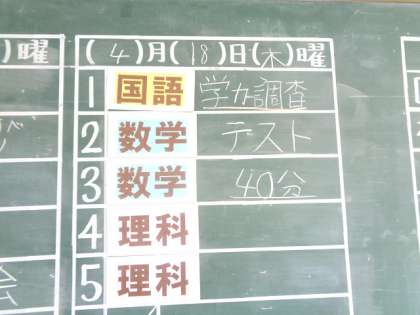 )曜
(4)月(18)日(木)曜
1 国語 学力調査
2 数学 テスト
3 数学 40分
4 理科
5 理科
会